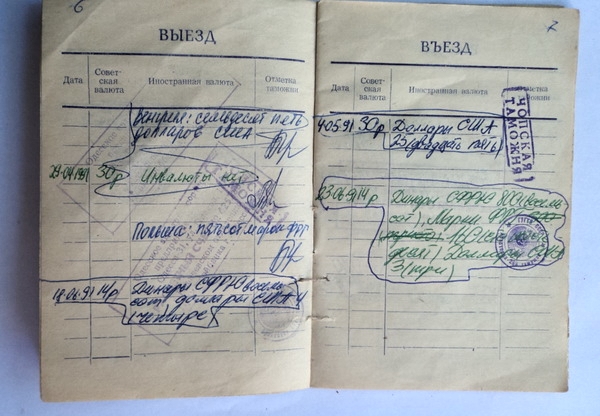 6
ВЫЕЗД
Дата
Совет-
ская
валюта
Иностранная валюта
Отметка
таможни
Венгрия: семьдесят пять
долларов США
29-04 1991 30р Инвалюты нет
Польша: пятьсот марок ФРГ
18.06.91 14р Динары СФРЮ восемь
сот, доллары США 4
(четыре)
7
ВЪЕЗД
Дата
Совет-
ская
валюта
Иностранная валюта
Отметка
таможни
4-05.91 30р Доллары США
25 (двадцать пять)
ЧОПСКАЯ
ТАМОЖНЯ
23.06.91 14р Динары СФРЮ 800 (восемь
сот), Марки ФРГ
Доллары США
3 (три)